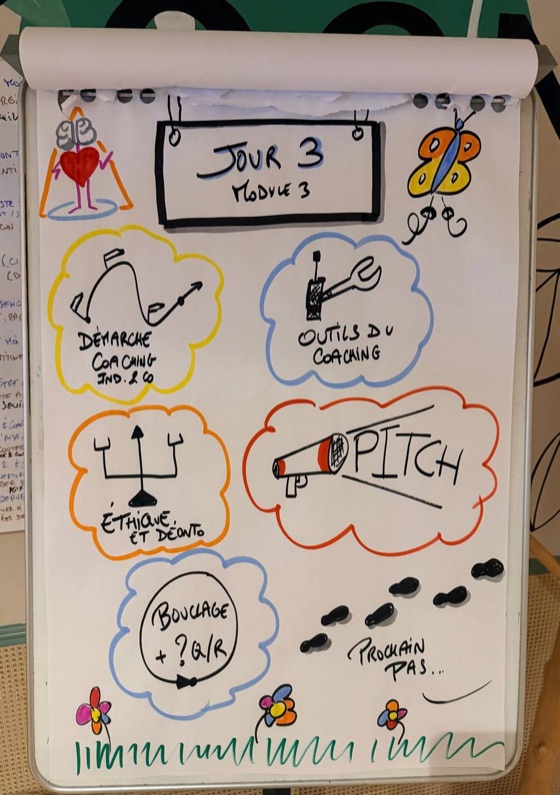 JOUR 3
MODULE 3
DÉMARCHE
COACHING
IND. & CO
OUTILS DU
COACHING
ÉTHIQUE
ET DÉONTO
PITCH
BOUCLAGE
+ ? Q/R
PROCHAIN
PAS...